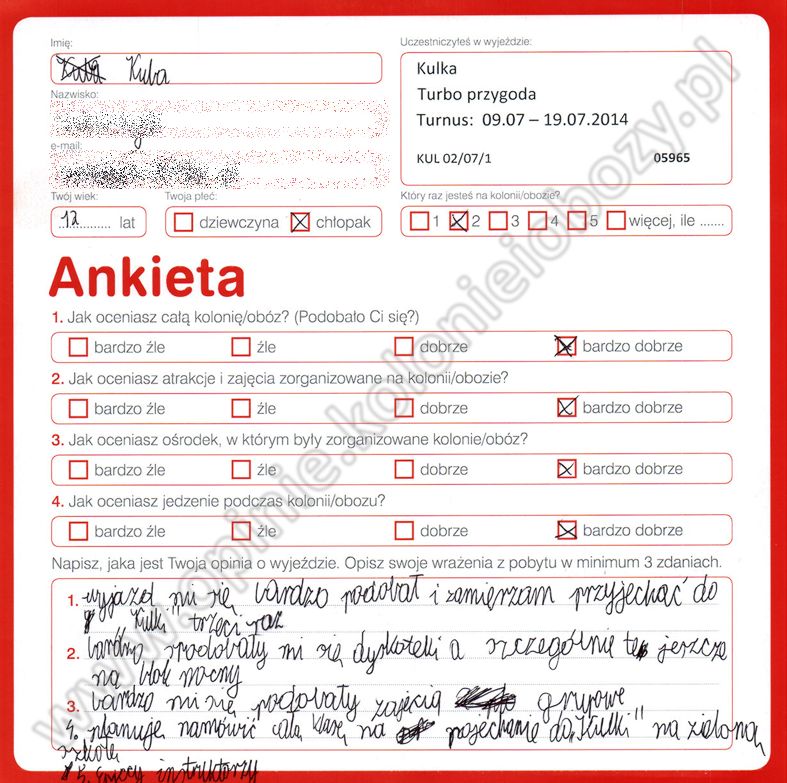 Imię:
Kuba
Nazwisko:
e-mail:
Twój wiek:
12 lat
Twoja płeć:
dziewczyna chłopak
Uczestniczyłeś w wyjeździe:
Kulka
Turbo przygoda
Turnus: 09.07 – 19.07.2014
KUL 02/07/1 05965
Który raz jesteś na kolonii/obozie?
1 2 3 4 5 więcej, ile .......
Ankieta
1. Jak oceniasz całą kolonię/obóz? (Podobało Ci się?)
bardzo źle źle dobrze bardzo dobrze
2. Jak oceniasz atrakcje i zajęcia zorganizowane na kolonii/obozie?
bardzo źle źle dobrze bardzo dobrze
3. Jak oceniasz ośrodek, w którym były zorganizowane kolonie/obóz?
bardzo źle źle dobrze bardzo dobrze
4. Jak oceniasz jedzenie podczas kolonii/obozu?
bardzo źle źle dobrze bardzo dobrze
Napisz, jaka jest Twoja opinia o wyjeździe. Opisz swoje wrażenia z pobytu w minimum 3 zdaniach.
1. wyjazd mi się bardzo podobał i zamierzam przyjechać do
„Kulki" trzeci raz
2. bardzo podobały mi się dyskoteki a szczególnie te jeszcze
na blok nocny
3. bardzo mi się podobały zajęcia grupowe
4. planuje namówić całą klasę na pojechanie do „Kulki" na zieloną
szkołę
5. instruktorzy
www.opinie.kolonieiobozy.pl